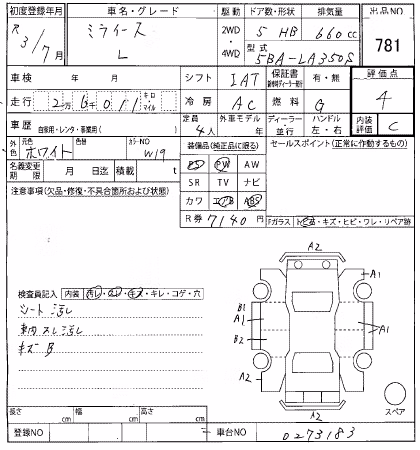 初度登録年月 車名・グレード 駆動 ドア数・形状 排気量 出品NO
R3/7月 ミライース L 2WD・4WD 5 HB 660cc 781
型式 5BA-LA350S
車検 年 月 シフト IAT 保証書 有・無 評価点
走行 2万6千011 キロ マイル 冷房 AC 燃料 G 4
車歴 自家用・レンタ・事業用( ) 定員 4人 外車モデル 年 ディーラー・並行 ハンドル 左・右 内装評価 C
外色 元色 ホワイト 色替 カラーNO W19 装備品(純正品に限る) セールスポイント(正常に作動するもの)
名義変更期限 月 日迄 積載 t PS PW AW
注意事項(欠品・修復・不具合箇所および状態) SR TV ナビ
カワ エアB ABS
R券 7140円 Fガラス トビ石・キズ・ヒビ・ワレ・リペア跡
A2
A1
検査員記入 内装 汚レ・スレ・キズ・キレ・コゲ・穴
シート汚レ
車内スレ汚レ
キズB
B1
A1
B2
A1
A2
A2
スペア
長さ cm 幅 cm 高さ cm
登録NO 車台NO 0273183